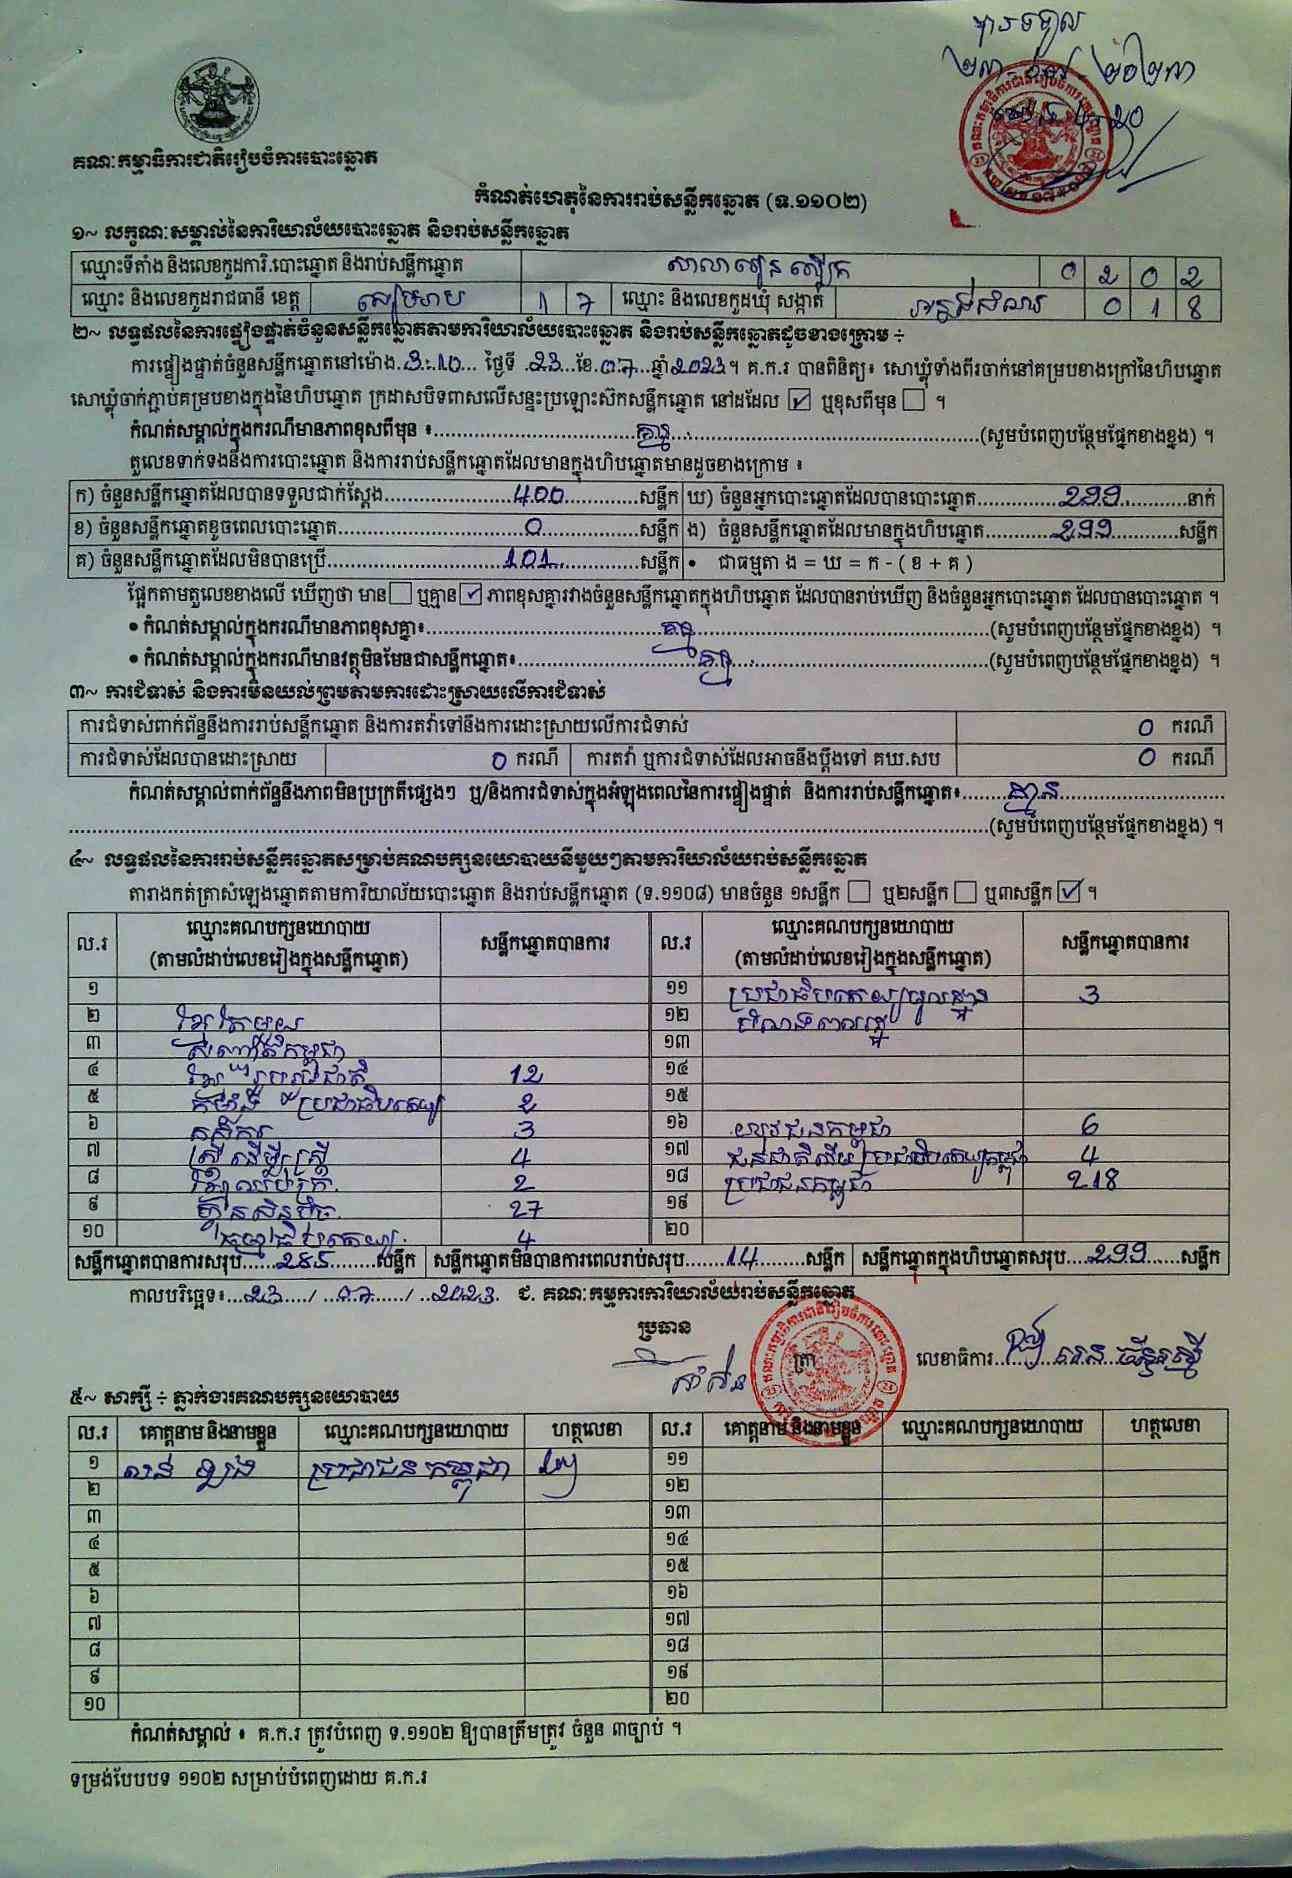 បានទទួល
គណៈកម្មាធិការជាតិរៀបចំការបោះឆ្នោត
កំណត់ហេតុនៃការរាប់សន្លឹកឆ្នោត (ទ.១១០២)
១~ លក្ខណៈសម្គាល់នៃការិយាល័យបោះឆ្នោត និងរាប់សន្លឹកឆ្នោត
ឈ្មោះទីតាំង និងលេខកូដការិ.បោះឆ្នោត និងរាប់សន្លឹកឆ្នោត 0 2 0 2
ឈ្មោះ និងលេខកូដរាជធានី ខេត្ត សៀមរាប 1 7 ឈ្មោះ និងលេខកូដឃុំ សង្កាត់ 0 1 8
២~ លទ្ធផលនៃការផ្ទៀងផ្ទាត់ចំនួនសន្លឹកឆ្នោតតាមការិយាល័យបោះឆ្នោត និងរាប់សន្លឹកឆ្នោតដូចខាងក្រោម ÷
ការផ្ទៀងផ្ទាត់ចំនួនសន្លឹកឆ្នោតនៅម៉ោង.3:10... ថ្ងៃទី .23...ខែ.07...ឆ្នាំ2023។ គ.ក.រ បានពិនិត្យ៖ សោឃ្លុំទាំងពីរចាក់នៅគម្របខាងក្រៅនៃហិបឆ្នោត
សោឃ្លុំចាក់ភ្ជាប់គម្របខាងក្នុងនៃហិបឆ្នោត ក្រដាសបិទពាសលើសន្ទះប្រឡោះស៊កសន្លឹកឆ្នោត នៅដដែល ☑ ឬខុសពីមុន ☐ ។
កំណត់សម្គាល់ក្នុងករណីមានភាពខុសពីមុន ៖.....គ្មាន.....(សូមបំពេញបន្ថែមផ្នែកខាងខ្នង) ។
តួលេខទាក់ទងនឹងការបោះឆ្នោត និងការរាប់សន្លឹកឆ្នោតដែលមានក្នុងហិបឆ្នោតមានដូចខាងក្រោម ៖
ក) ចំនួនសន្លឹកឆ្នោតដែលបានទទួលជាក់ស្តែង.....400.....សន្លឹក ឃ) ចំនួនអ្នកបោះឆ្នោតដែលបានបោះឆ្នោត.....299.....នាក់
ខ) ចំនួនសន្លឹកឆ្នោតខូចពេលបោះឆ្នោត.....0.....សន្លឹក ង) ចំនួនសន្លឹកឆ្នោតដែលមានក្នុងហិបឆ្នោត.....299.....សន្លឹក
គ) ចំនួនសន្លឹកឆ្នោតដែលមិនបានប្រើ.....101.....សន្លឹក • ជាធម្មតា ង = ឃ = ក - ( ខ + គ )
ផ្អែកតាមតួលេខខាងលើ ឃើញថា មាន ☐ ឬគ្មាន ☑ ភាពខុសគ្នារវាងចំនួនសន្លឹកឆ្នោតក្នុងហិបឆ្នោត ដែលបានរាប់ឃើញ និងចំនួនអ្នកបោះឆ្នោត ដែលបានបោះឆ្នោត ។
• កំណត់សម្គាល់ក្នុងករណីមានភាពខុសគ្នា៖.....គ្មាន.....(សូមបំពេញបន្ថែមផ្នែកខាងខ្នង) ។
• កំណត់សម្គាល់ក្នុងករណីមានវត្ថុមិនមែនជាសន្លឹកឆ្នោត៖.....គ្មាន.....(សូមបំពេញបន្ថែមផ្នែកខាងខ្នង) ។
៣~ ការជំទាស់ និងការមិនយល់ព្រមតាមការដោះស្រាយលើការជំទាស់
ការជំទាស់ពាក់ព័ន្ធនឹងការរាប់សន្លឹកឆ្នោត និងការតវ៉ាទៅនឹងការដោះស្រាយលើការជំទាស់ 0 ករណី
ការជំទាស់ដែលបានដោះស្រាយ 0 ករណី ការតវ៉ា ឬការជំទាស់ដែលអាចនឹងប្តឹងទៅ គឃ.សប 0 ករណី
កំណត់សម្គាល់ពាក់ព័ន្ធនឹងភាពមិនប្រក្រតីផ្សេងៗ ឬ/និងការជំទាស់ក្នុងអំឡុងពេលនៃការផ្ទៀងផ្ទាត់ និងការរាប់សន្លឹកឆ្នោត៖.....គ្មាន.....
.....(សូមបំពេញបន្ថែមផ្នែកខាងខ្នង) ។
៤~ លទ្ធផលនៃការរាប់សន្លឹកឆ្នោតសម្រាប់គណបក្សនយោបាយនីមួយៗតាមការិយាល័យរាប់សន្លឹកឆ្នោត
តារាងកត់ត្រាសំឡេងឆ្នោតតាមការិយាល័យបោះឆ្នោត និងរាប់សន្លឹកឆ្នោត (ទ.១១០៨) មានចំនួន ១សន្លឹក ☐ ឬ២សន្លឹក ☐ ឬ៣សន្លឹក ☑ ។
ល.រ ឈ្មោះគណបក្សនយោបាយ (តាមលំដាប់លេខរៀងក្នុងសន្លឹកឆ្នោត) សន្លឹកឆ្នោតបានការ ល.រ ឈ្មោះគណបក្សនយោបាយ (តាមលំដាប់លេខរៀងក្នុងសន្លឹកឆ្នោត) សន្លឹកឆ្នោតបានការ
១ ១១ ប្រជាធិបតេយ្យមូលដ្ឋាន 3
២ ខ្មែរតែមួយ ១២
៣ ១៣
៤ ខ្មែររួបរួមជាតិ 12 ១៤
៥ ប្រជាធិបតេយ្យ 2 ១៥
៦ កសិករ 3 ១៦ យុវជនកម្ពុជា 6
៧ ស្ត្រីដើម្បីស្ត្រី 4 ១៧ ជនជាតិដើមប្រជាធិបតេយ្យកម្ពុជា 4
៨ 2 ១៨ ប្រជាជនកម្ពុជា 218
៩ ហ្វ៊ុនស៊ិនប៉ិច 27 ១៩
១០ ធម្មាធិបតេយ្យ 4 ២០
សន្លឹកឆ្នោតបានការសរុប.....285.....សន្លឹក សន្លឹកឆ្នោតមិនបានការពេលរាប់សរុប.....14.....សន្លឹក សន្លឹកឆ្នោតក្នុងហិបឆ្នោតសរុប.....299.....សន្លឹក
កាលបរិច្ឆេទ៖...23.../...07.../...2023. ជ. គណៈកម្មការការិយាល័យរាប់សន្លឹកឆ្នោត
ប្រធាន
ត្រា
លេខាធិការ
៥~ សាក្សី ÷ ភ្នាក់ងារគណបក្សនយោបាយ
ល.រ គោត្តនាម និងនាមខ្លួន ឈ្មោះគណបក្សនយោបាយ ហត្ថលេខា ល.រ គោត្តនាម និងនាមខ្លួន ឈ្មោះគណបក្សនយោបាយ ហត្ថលេខា
១ ប្រជាជនកម្ពុជា ១១
២ ១២
៣ ១៣
៤ ១៤
៥ ១៥
៦ ១៦
៧ ១៧
៨ ១៨
៩ ១៩
១០ ២០
កំណត់សម្គាល់ ៖ គ.ក.រ ត្រូវបំពេញ ទ.១១០២ ឱ្យបានត្រឹមត្រូវ ចំនួន ៣ច្បាប់ ។
ទម្រង់បែបបទ ១១០២ សម្រាប់បំពេញដោយ គ.ក.រ